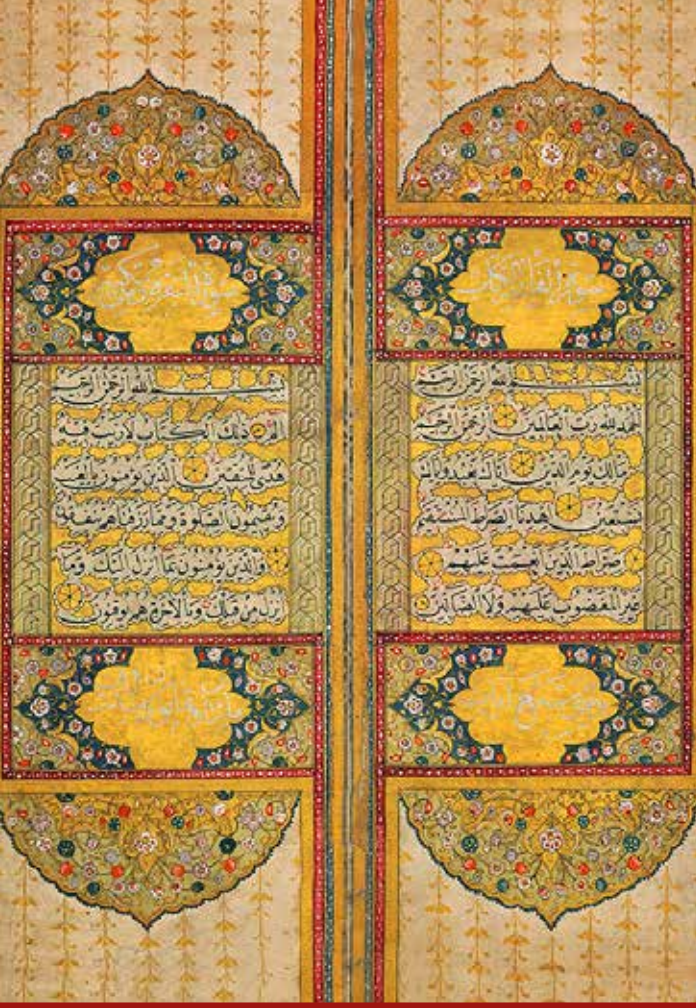 سورة
بسم الله الرحمن الرحيم
الحمد لله رب العالمين الرحمن الرحيم
مالك يوم الدين اياك نعبد واياك
نستعين اهدنا الصراط المستقيم
صراط الذين انعمت عليهم
غير المغضوب عليهم ولا الضالين
سورة البقرة
بسم الله الرحمن الرحيم
الم ذلك الكتاب لا ريب فيه
هدى للمتقين الذين يؤمنون بالغيب
ويقيمون الصلوة ومما رزقناهم ينفقون
والذين يؤمنون بما انزل اليك وما
انزل من قبلك وبالاخرة هم يوقنون